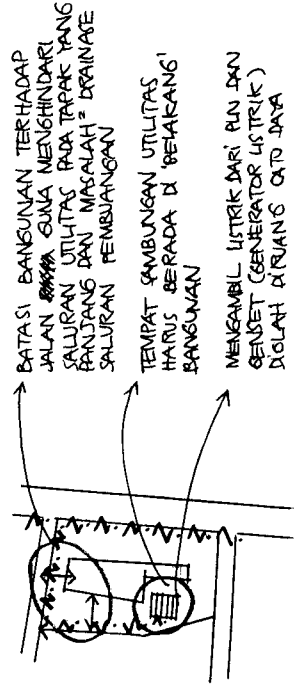 BATASI BANGUNAN TERHADAP
JALAN GUNA MENGHINDARI
SALURAN UTILITAS PADA TAPAK YANG
PANJANG DAN MASALAH² DRAINASE
SALURAN PEMBUANGAN
TEMPAT SAMBUNGAN UTILITAS
HARUS BERADA DI 'BELAKANG'
BANGUNAN
MENGAMBIL LISTRIK DARI PLN DAN
GENSET (GENERATOR LISTRIK)
DIOLAH DIRUANG CATU DAYA